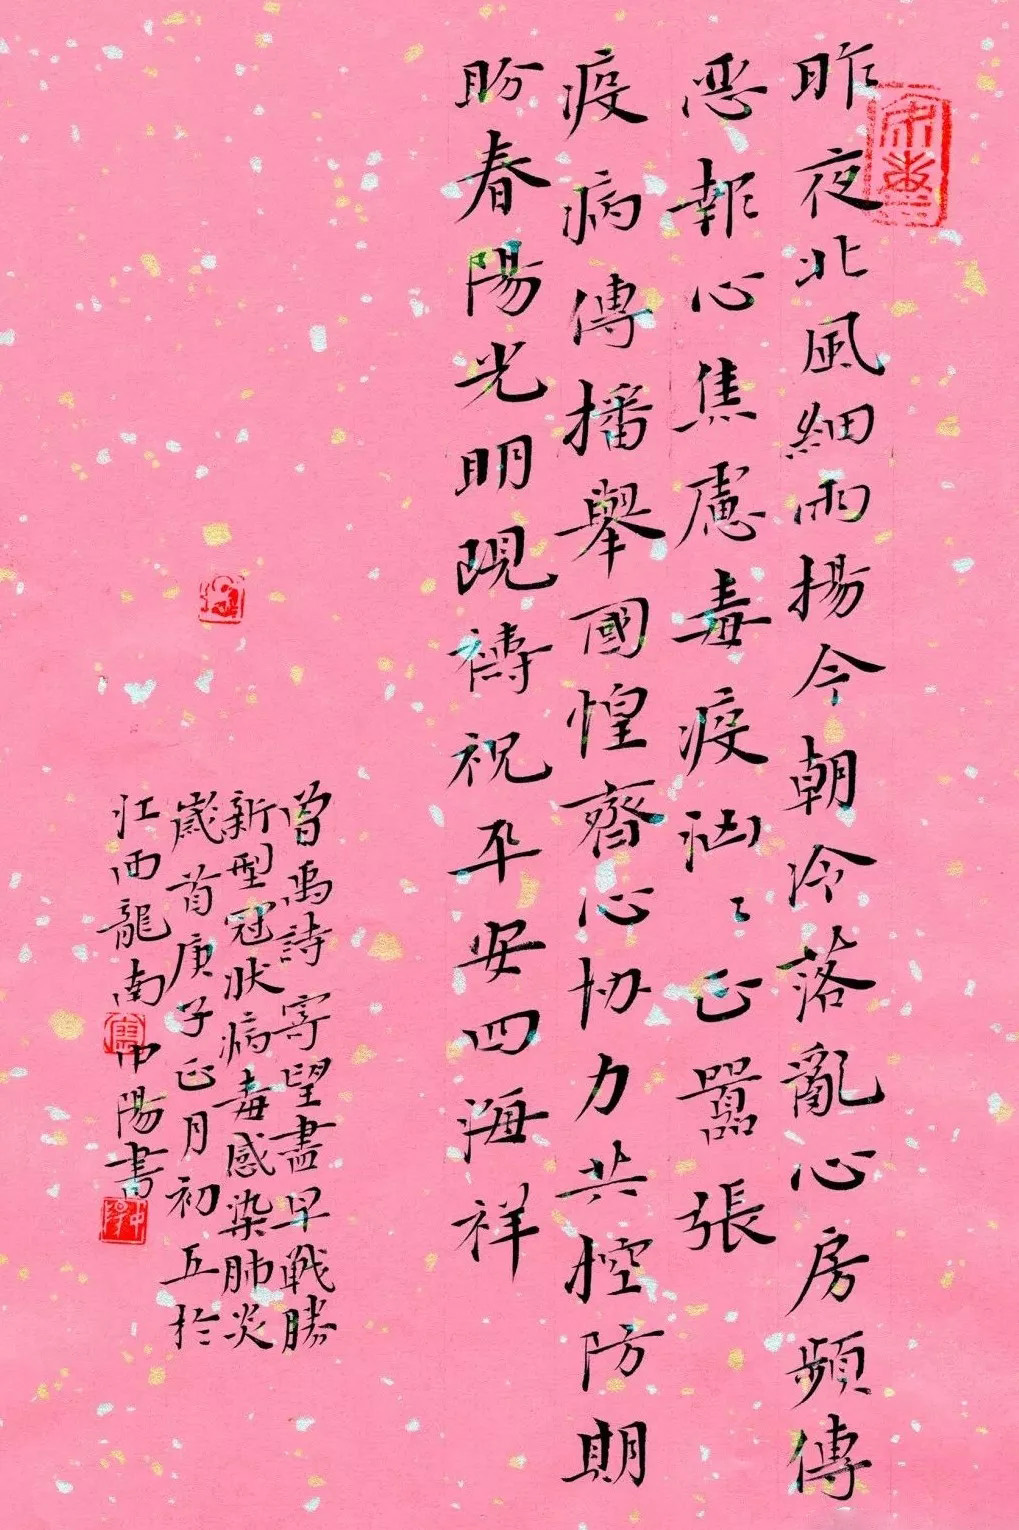 昨夜北風細雨揚今朝冷落亂心房頻傳
惡報心焦慮毒疫汹〻正囂張
疫病傳播舉國惶齊心協力共控防期
盼春陽光明現禱祝平安四海祥
曾禹詩寄望盡早戰勝
新型冠狀病毒感染肺炎
歲首庚子正月初五於
江西龍南中陽書